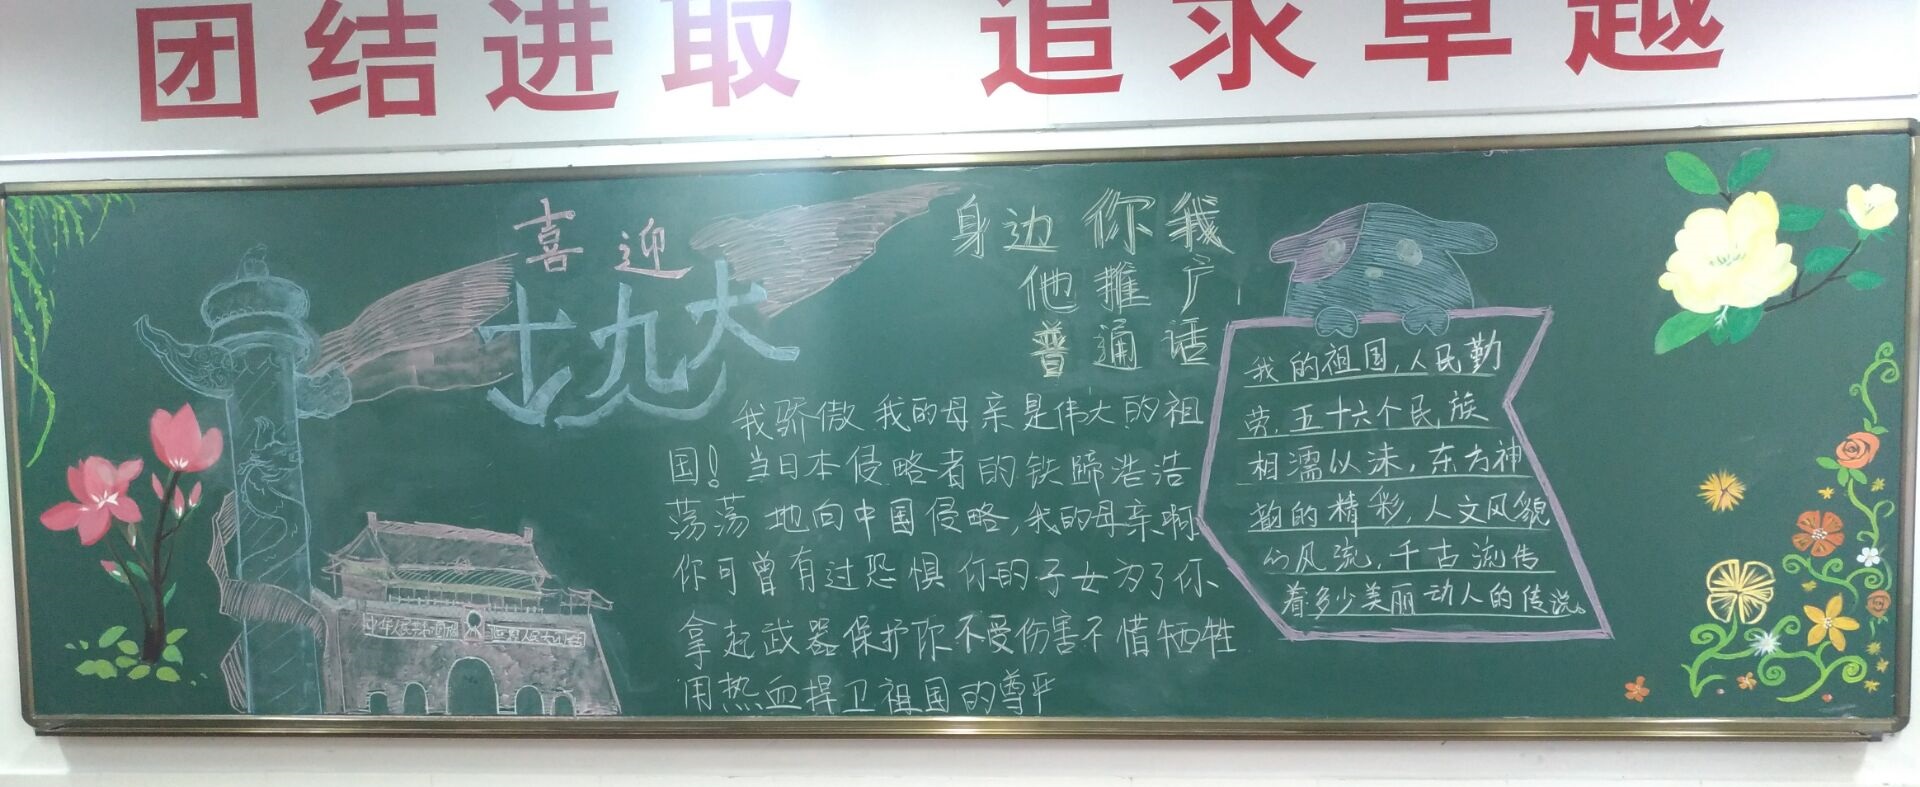 团结进取 追求卓越
喜迎
十九大
身边你我
他推广
普通话
我骄傲我的母亲是伟大的祖
国！当日本侵略者的铁蹄浩浩
荡荡地向中国侵略，我的母亲啊
你可曾有过恐惧你的子女为了你
拿起武器保护你不受伤害不惜牺牲
用热血捍卫祖国的尊严
我的祖国，人民勤
劳，五十六个民族
相濡以沫，东方神
韵的精彩，人文风貌
的风流，千古流传
着多少美丽动人的传说。
中华人民共和国万岁
世界人民大团结